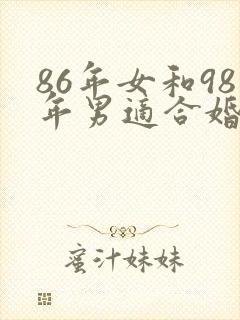 86年女和98
年男適合婚
蜜汁妹妹